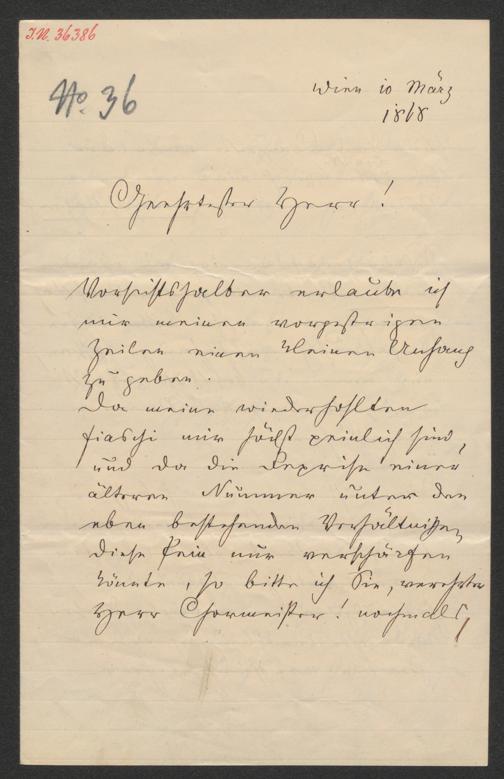 I.N. 36386
No. 36
Wien 10 März
1868
Geehrtester Herr!
Vorsichtshalber erlaube ich
mir meinen vorgestrigen
Zeilen einen kleinen Anhang
zu geben.
Da meine wiederholten
fiaschi mir höchst peinlich sind,
und da die Reprise einer
älteren Nummer unter den
eben bestehenden Verhältnißen,
diese Pein nur verschärfen
könnte, so bitte ich Sie, verehrter
Herr Chormeister! nochmals,